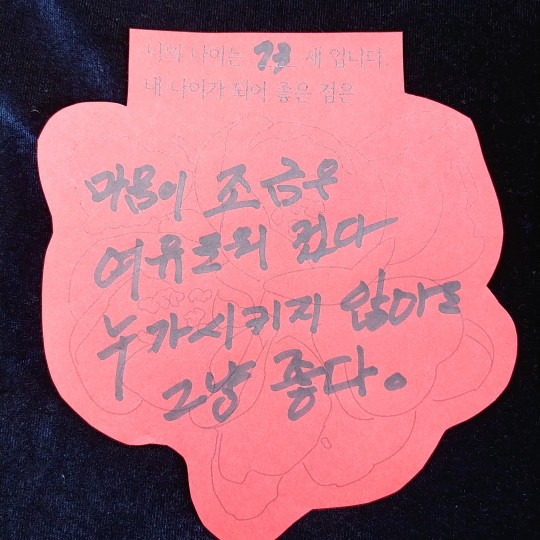 나의 나이는 73 세 입니다.
내 나이가 되어 좋은 점은
마음이 조금우
여유로워 젔다
누가시키지 않아도
그냥 좋다。